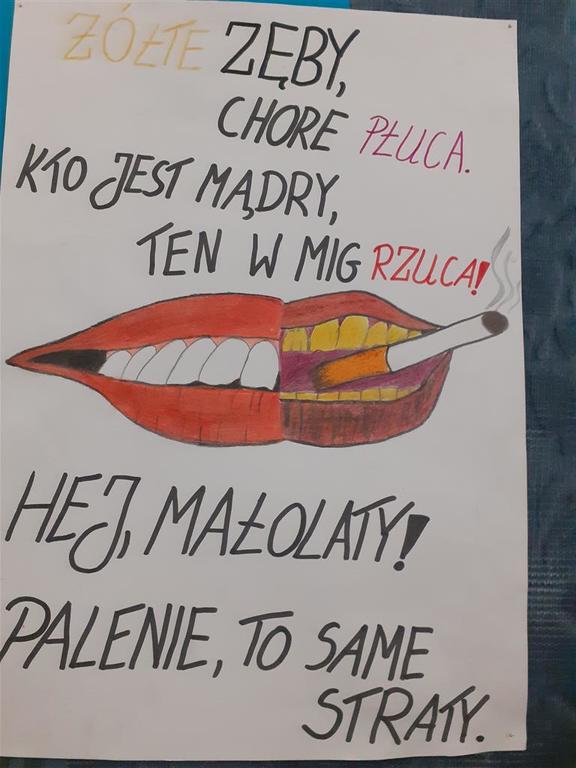 ŻÓŁTE ZĘBY,
CHORE PŁUCA.
KTO JEST MĄDRY,
TEN W MIG RZUCA!
HEJ, MAŁOLATY!
PALENIE, TO SAME
STRATY.